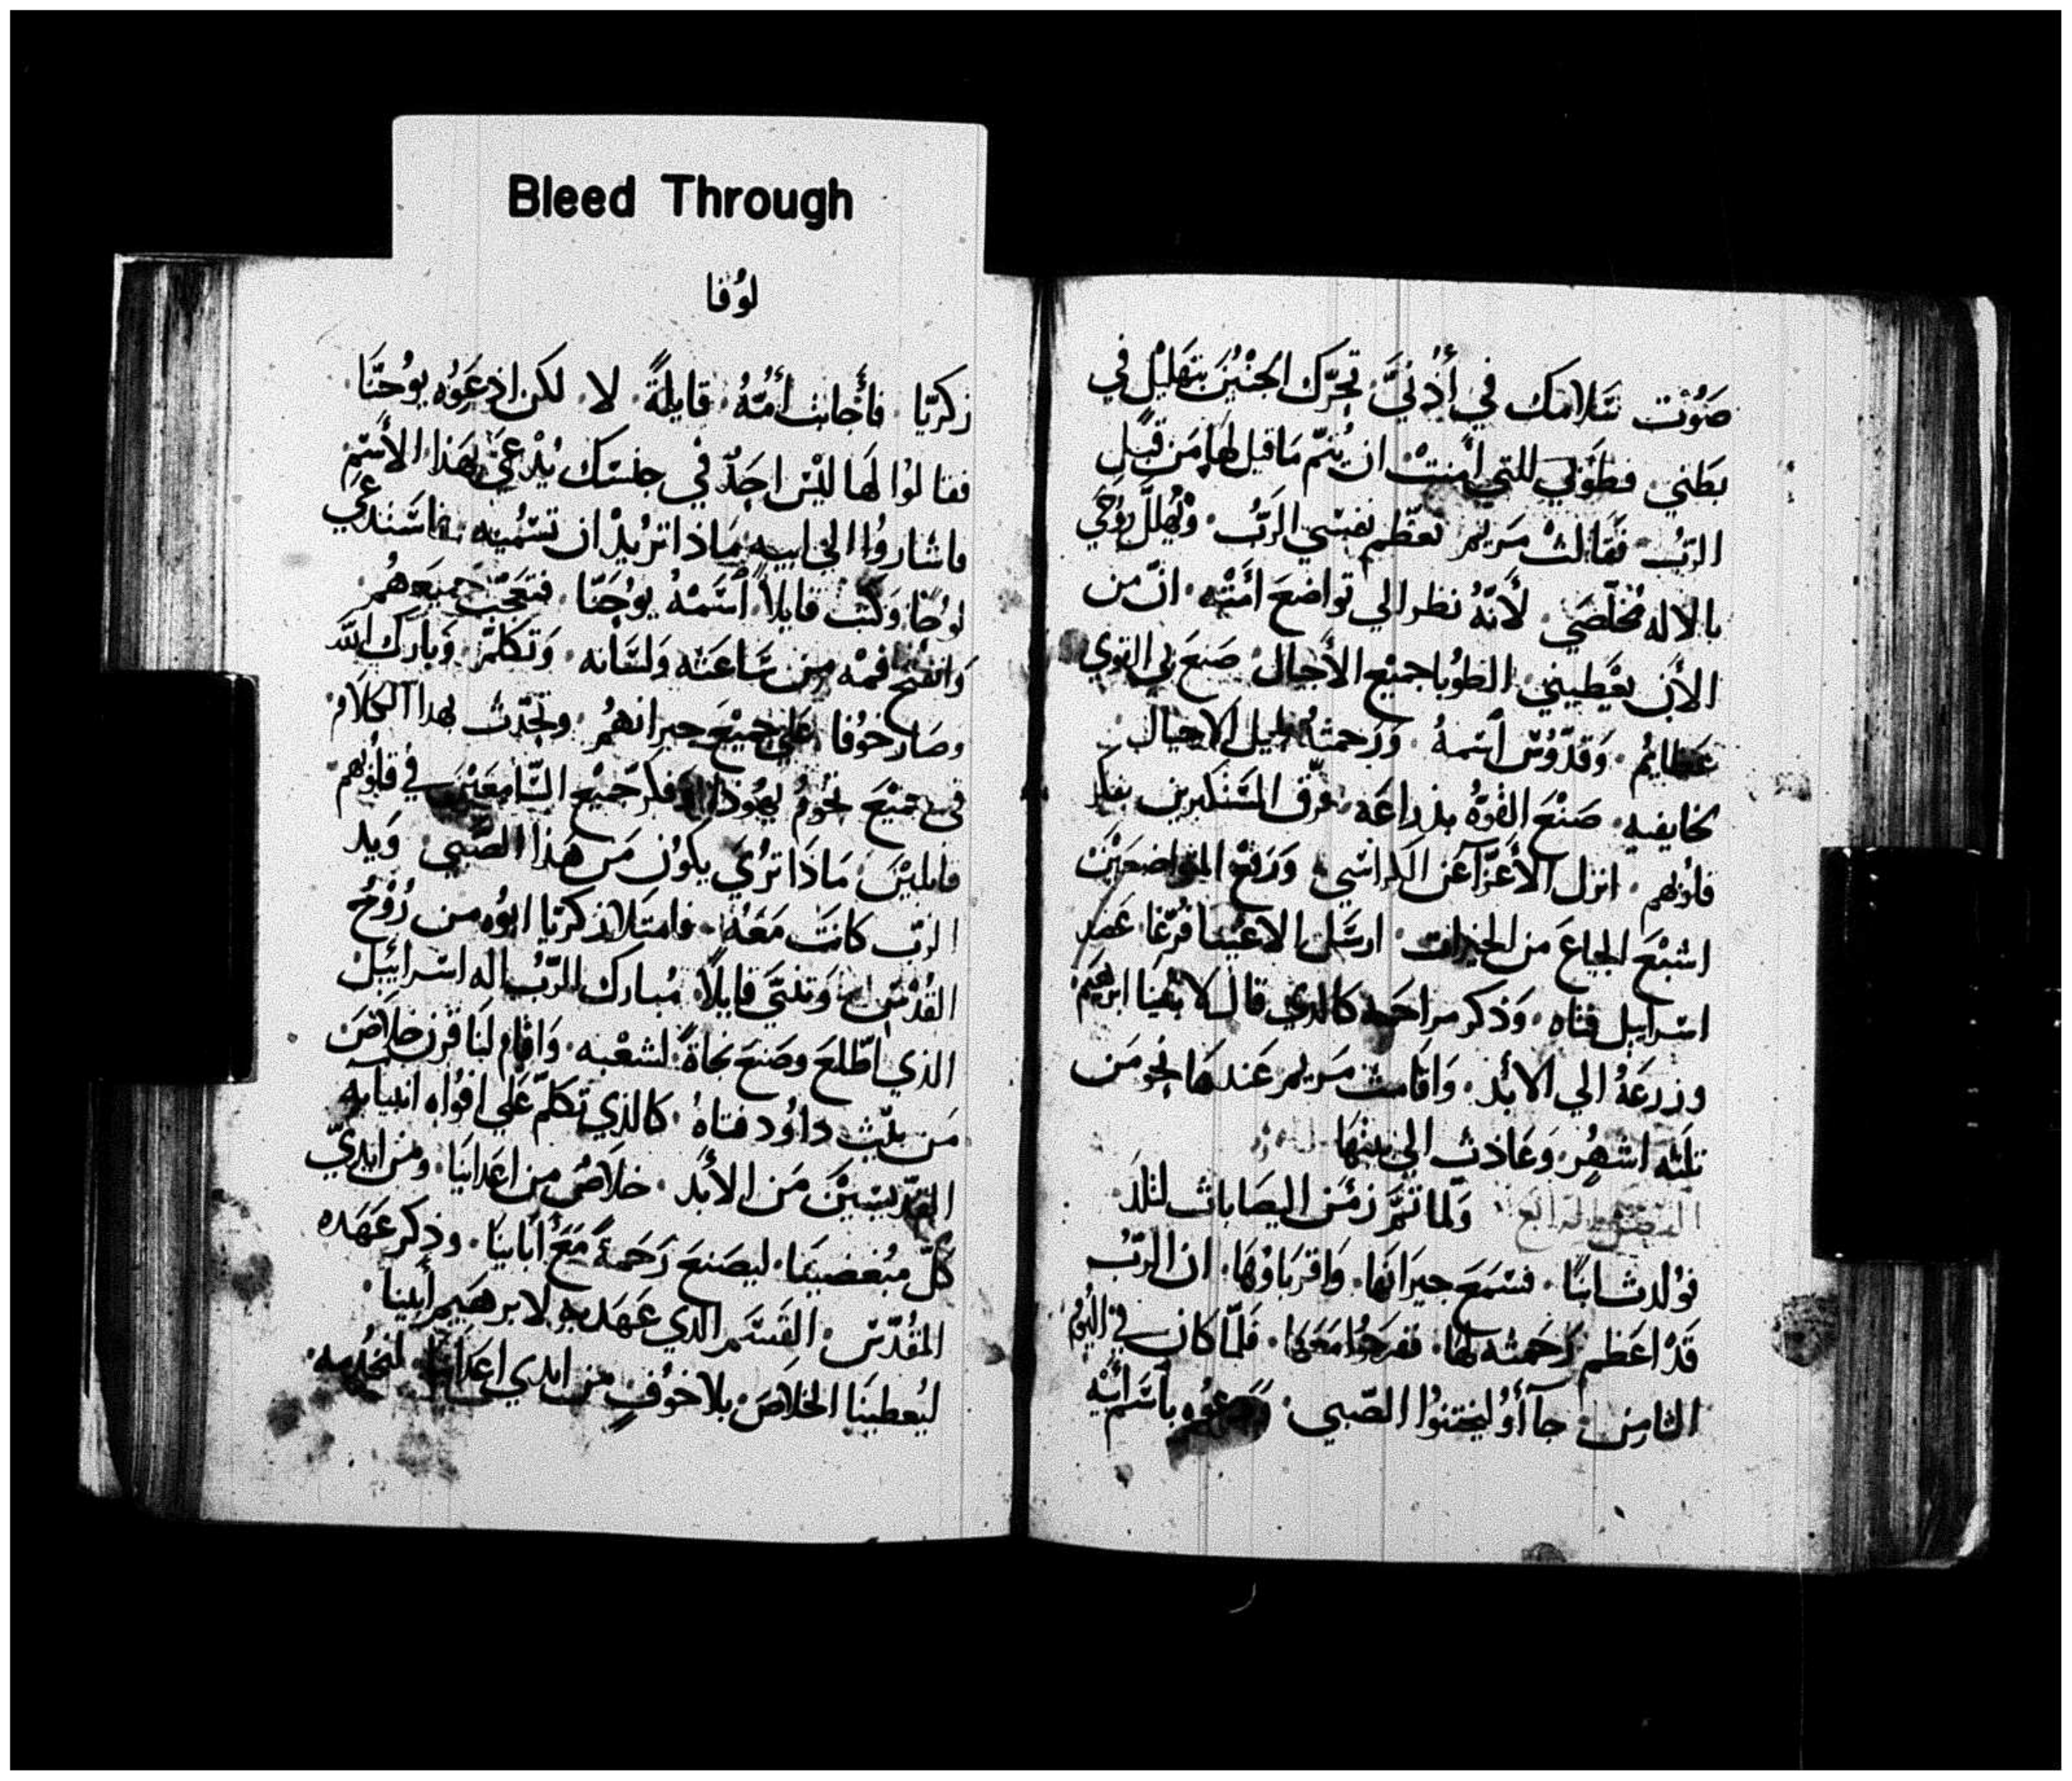 Bleed Through
صَوْت سَلامك في أُذنيَّ تحرَّك الجنْين بتهليْل في
بَطني فطوْبي للتي امنتْ ان يُتمّ مَا قيل لها من قبَل
الربُ فقَالتْ مَريم تعظّم نفسْي الرَبُ وتُهللُ روُحي
بالاله مُخلّصَي لأنّهُ نظر الي تواضعَ امَتْه انّ من
الأن يعْطيني الطوُبا جميْع الأجيال صَنعَ بي القوي
عَظايمُ وَقدّوُسٌ اسْمهُ وَرحمتهُ لجيل الاجيال
لخايفيه صَنْعَ القوّةُ بذراعَه فرّق المسْتكبرين بفكر
قلوُبهم انزل الأعزّآ عن الكراسْي وَرَفع المتواضعَيْن
اشبْعَ الجياعَ من الخيرات ارسَل الاغنيا فُرّغا عَضد
اسْراييل فتاه وَذكر مراحمه كالذي قال لابْهيَا ابرهَيم
وزرعَهُ الي الأبد وَاقامتْ مَريم عَندهَا نحو من
تلته اشهُر وَعَادتْ الي بيتهَا
وَلما تمّ زمَن اليصَابات لتلدَ
فوُلدت ابنًا فسْمعَ جيرَانهَا وَاقربَاوْهَا ان الربُّ
قدْ اعَظم رَحمته لهَا ففرحوُا معَهَا فلمّا كان في اليُوم
الثامِن جآأوُ ليختنوُا الصَبي وَدعوُه باسْم أبيْه
لوُقا
زكريّا فأجابت أمّهُ قايلةً لا لكن ادعَوُه يوُحنّا
فقالوُا لهَا ليْس احَدٌ في جنسْك يُدْعيَ بهَذا الأسْم
فاشاروُا الي ابيه مَاذا تريْد ان تسْمُيه فاسْتدعي
لوُحًا وَكتب قايلاً اسْمهُ يوُحَنّا فتعَجّب جَميعَهُم
وَانفتح فمهْ من سَاعَته وَلسَانه وَتكلمّ وَبارك الله
وصَار خوُفا علي جميْعَ جيرانهمُ وتحدّث بهدا الكلام
في جميْعَ تخوُم يهوُدا وَفكر جميْع السّامعَيْن في قلوُبهم
قايليْن مَاذَا تُريَ يكوُن مَن هَذا الصَبي وَيد
الربّ كانَت مَعَهُ فامتَلا زكريّا ابوُه من رُوْح
القدُس وَتنبّيَ قايلاً مُبارك الرّبُ اله اسْراييل
الذي اطّلعَ وصَنعَ نجاةً لشعْبه وَاقام لنَا قرن خلاصَ
مَن بيْت داوُد فتاهُ كالذي تكلّم عَلي افوُاه انبيايه
القدّيسيْن مَن الأبَد خلاصٌ من اعَدايَنا ومَن ايديّ
كلّ مبُغضينَا ليصَنعَ رَحَمةً مَعَ أبَاينَا وذكر عَهَده
المقُدّس القسَم الذي عَهَد به لابرهَيم أبينا
ليُعطينَا الخلاصَ بلا خوُفٍ من ايدي اعَداينا لنخدُمه